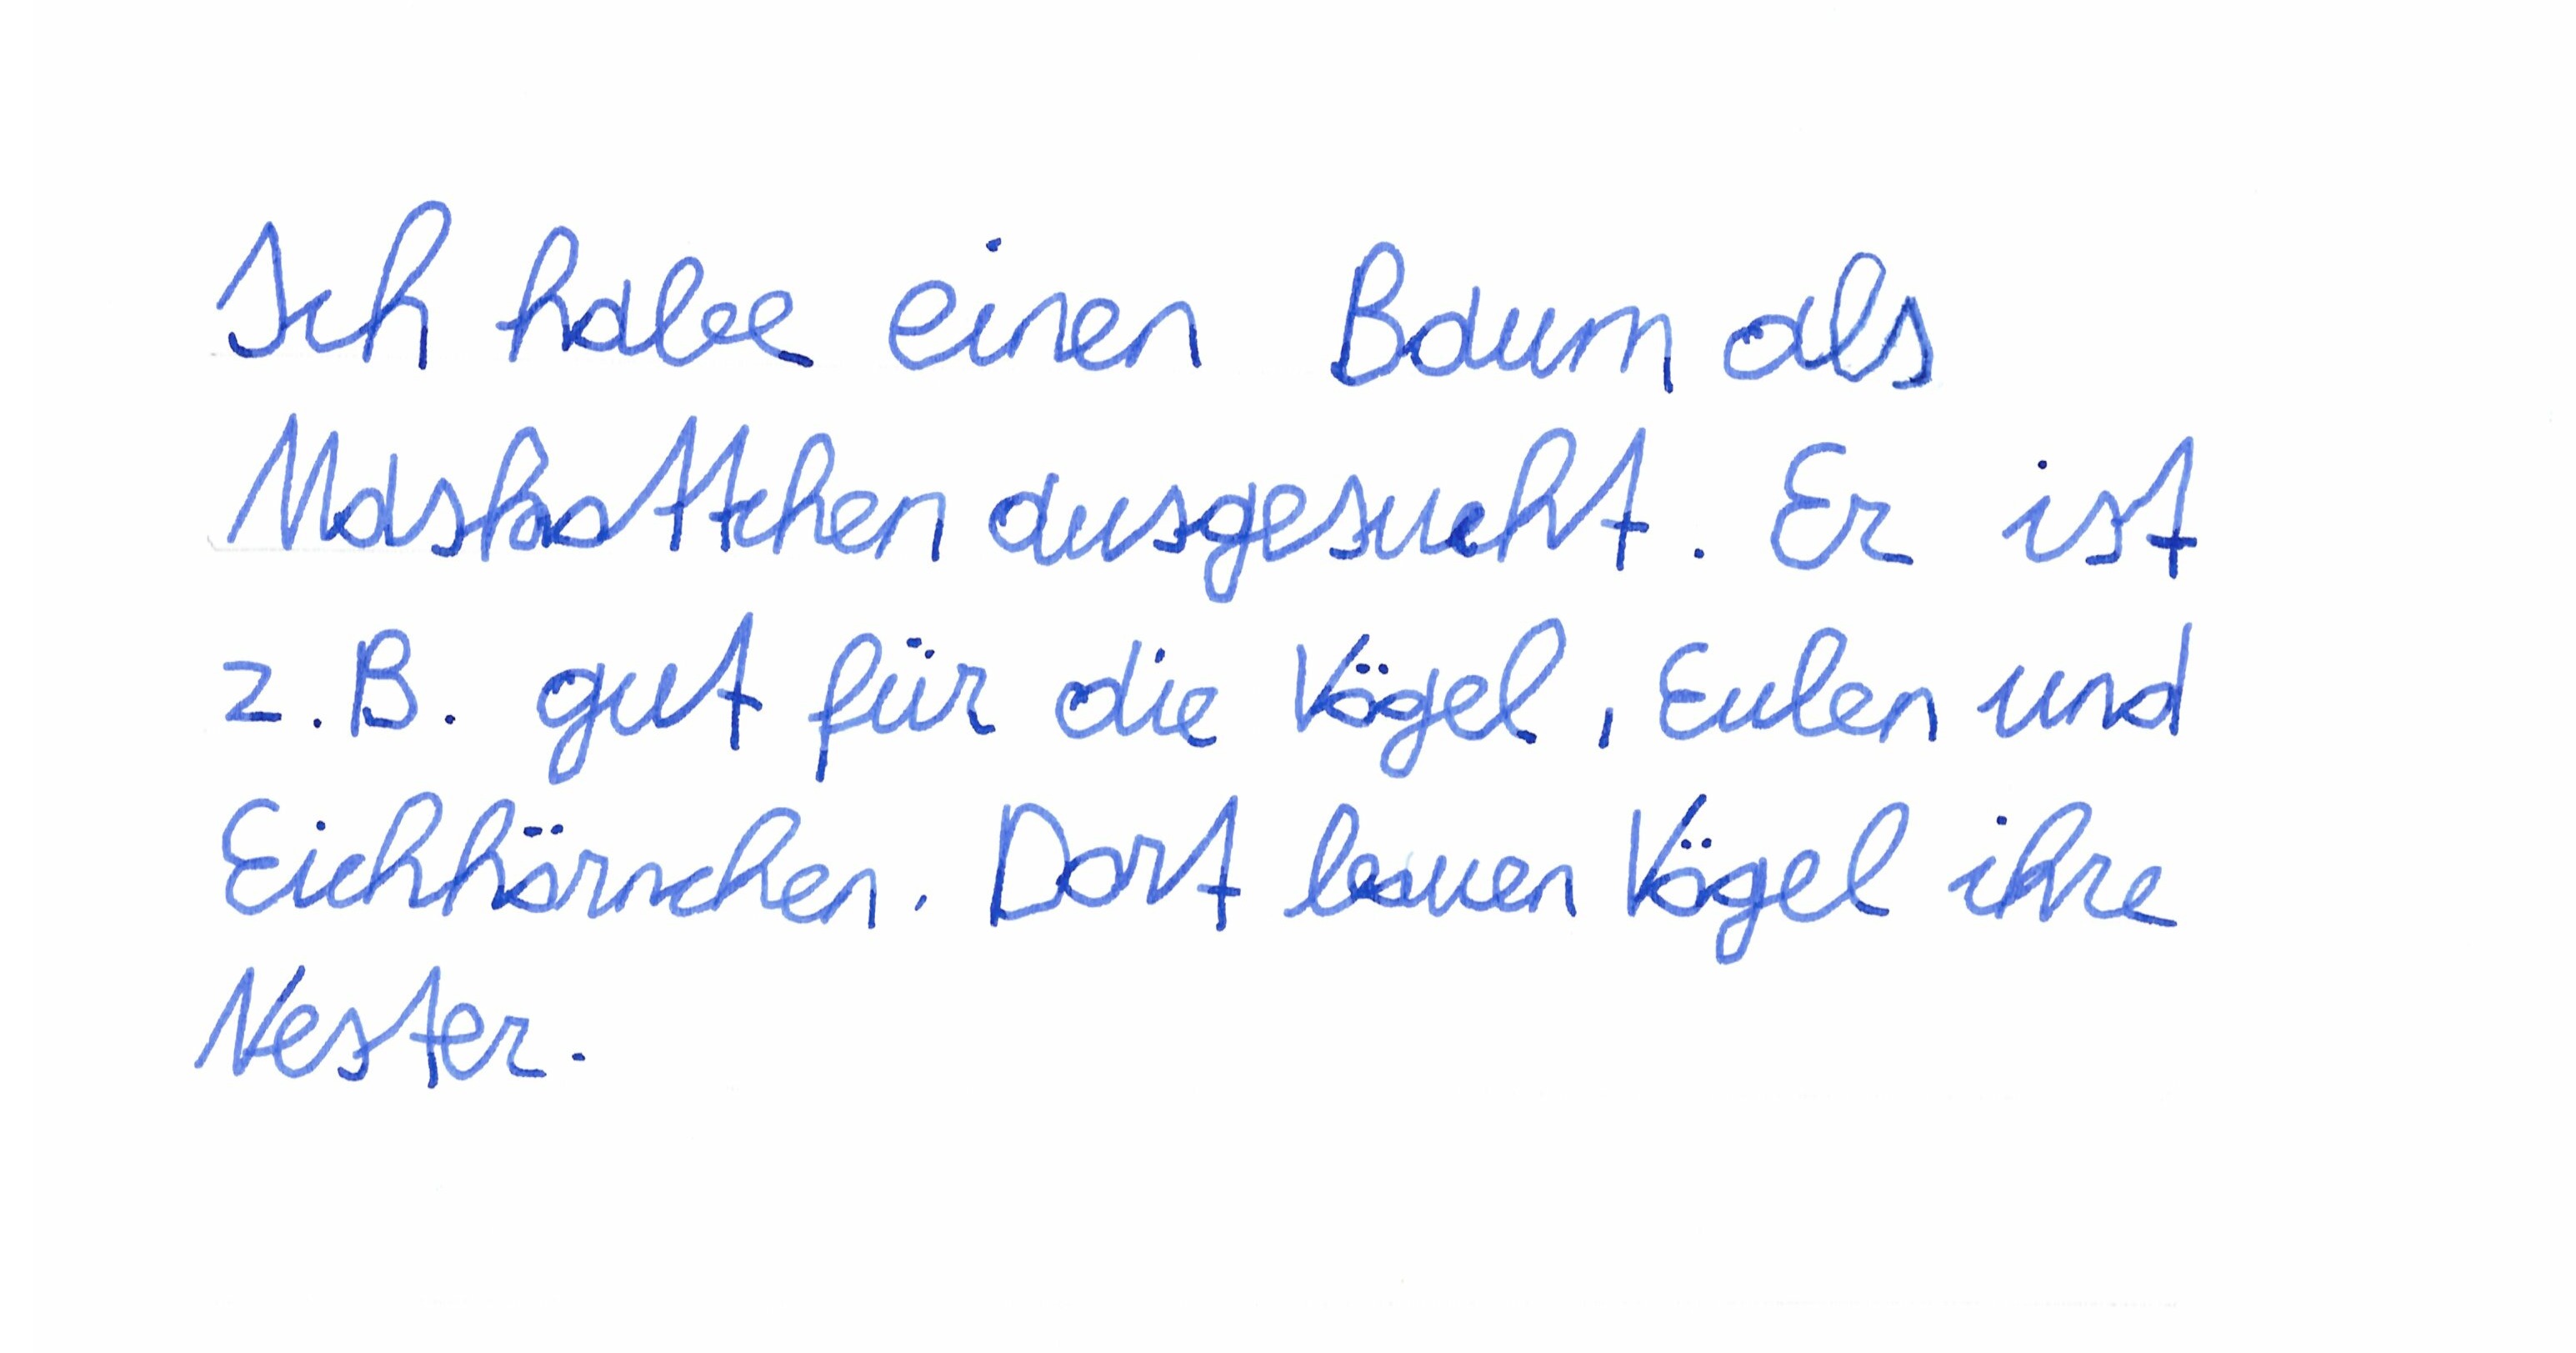 Ich habe einen Baum als
Maskottchen ausgesucht. Er ist
z.B. gut für die Vögel, Eulen und
Eichhörnchen. Dort bauen Vögel ihre
Nester.